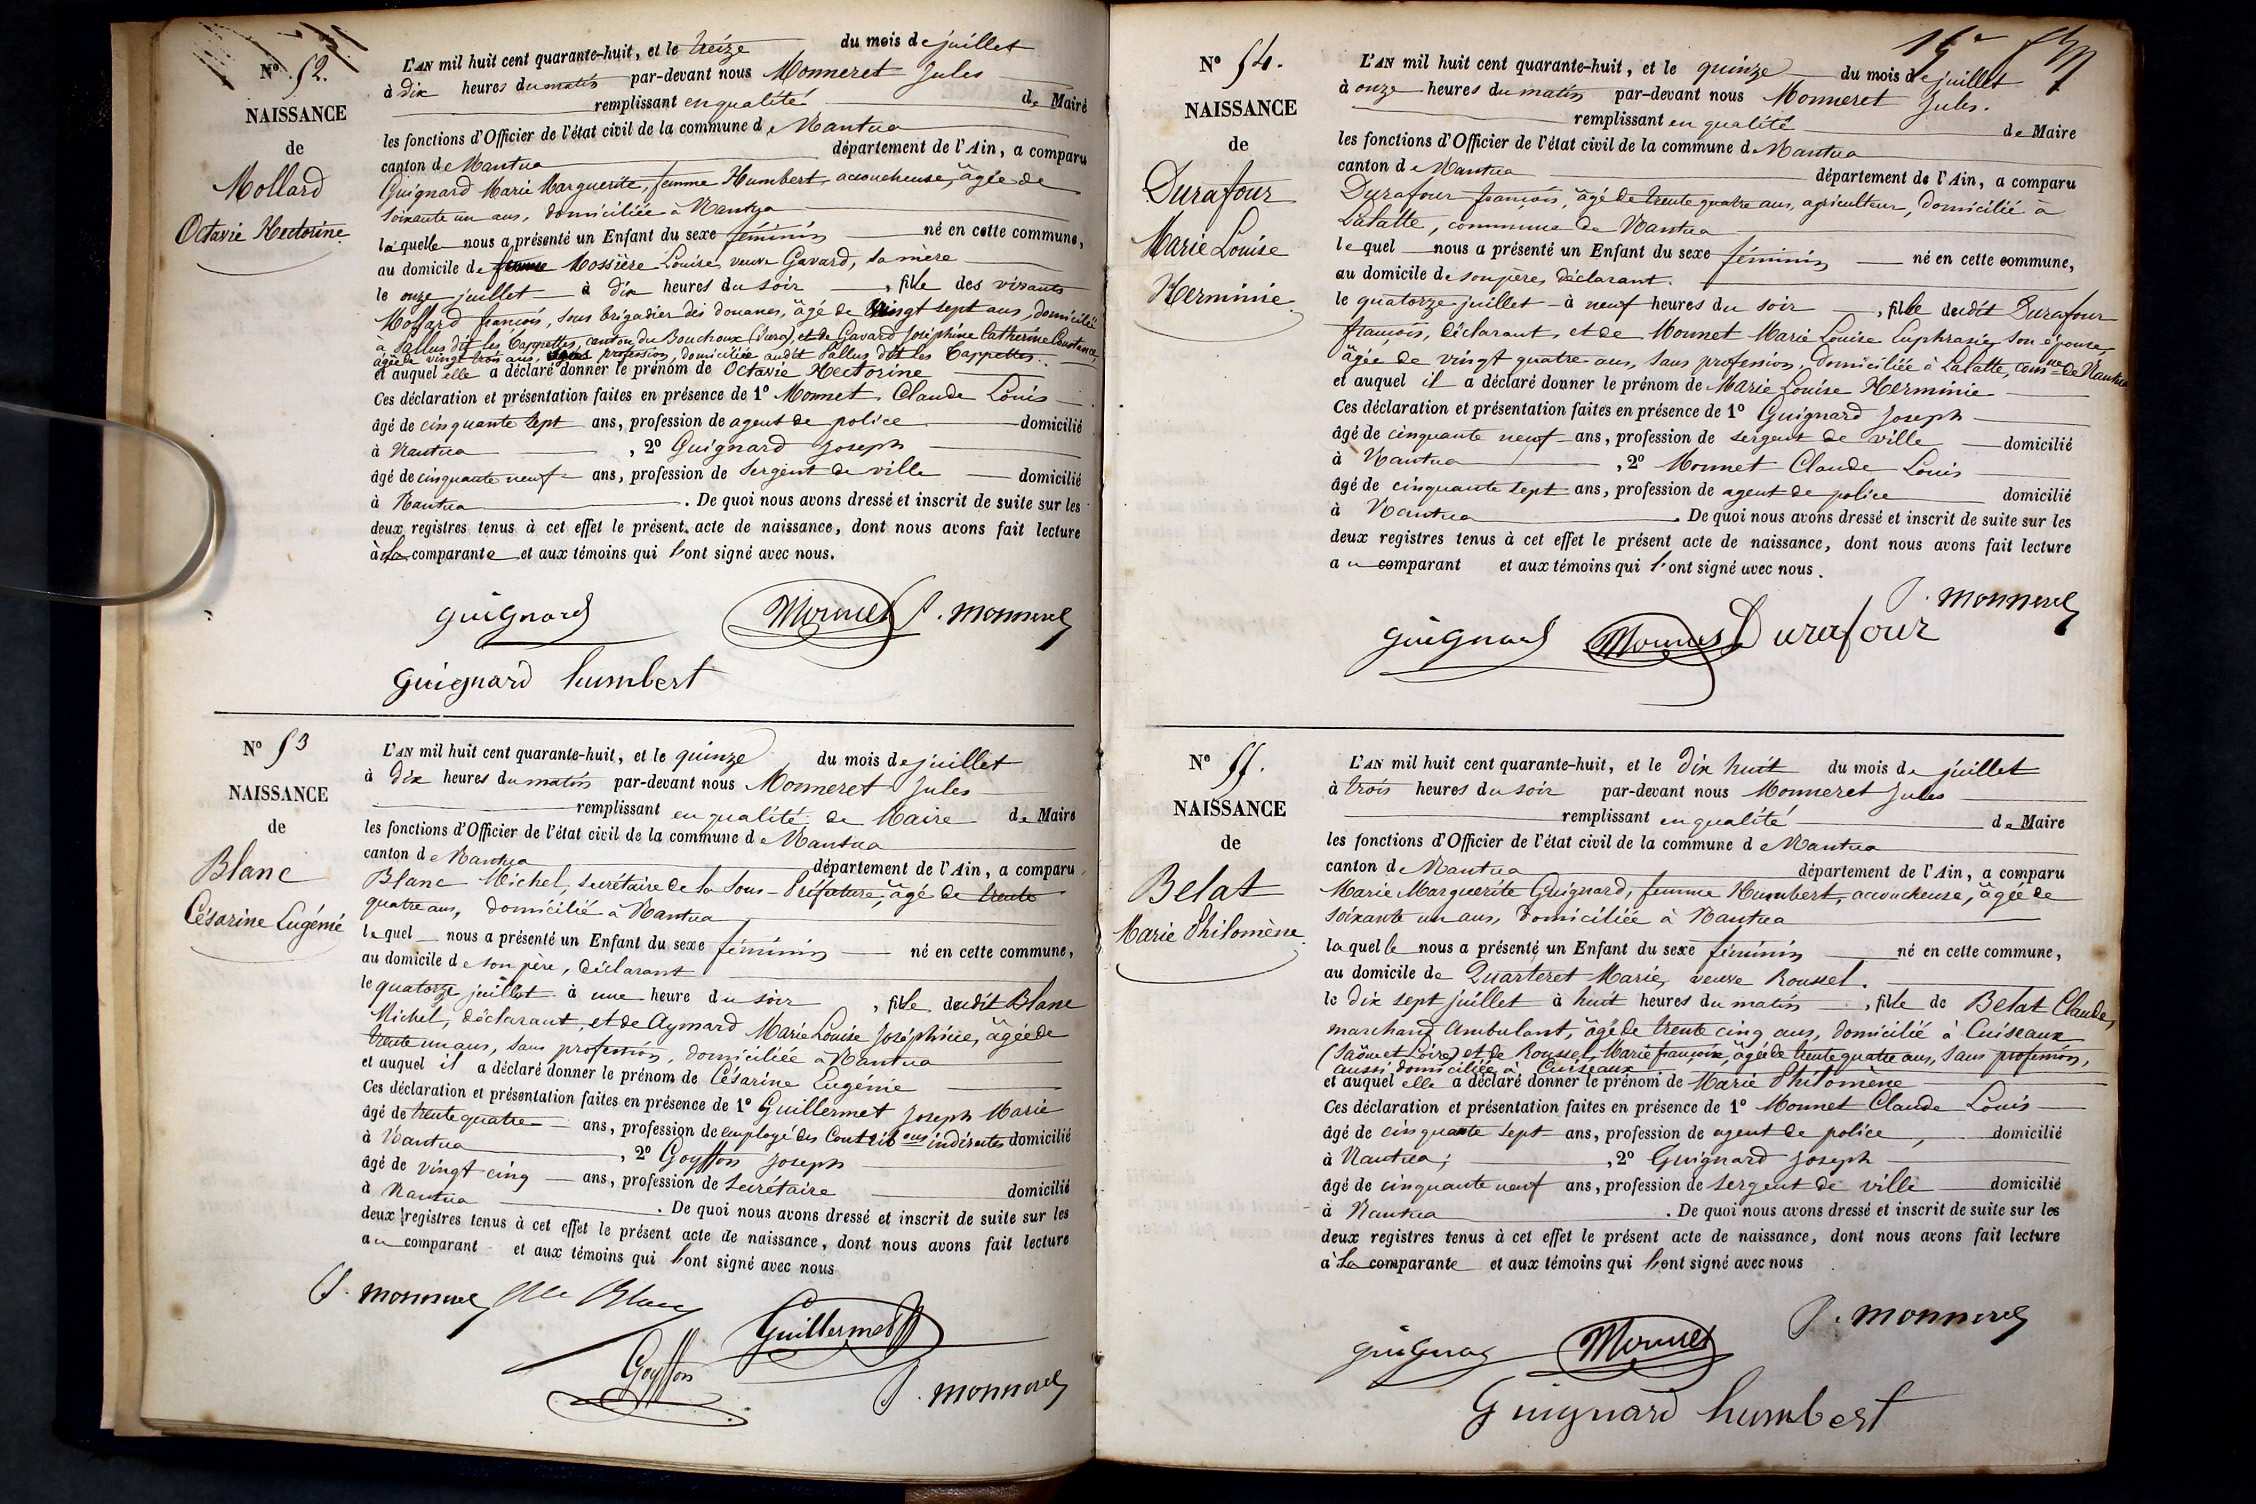 Nº 52.
NAISSANCE
de
Mollard
Octavie Hectorine
L'AN mil huit cent quarante-huit, et le treize du mois de juillet
à dix heures du matin par-devant nous Monneret Jules
remplissant en qualité de Maire
les fonctions d'Officier de l'état civil de la commune de Nantua
canton de Nantua département de l'Ain, a comparu
Guignard Marie Marguerite, femme Humbert, accoucheuse, âgée de
soixante un ans, domiciliée à Nantua
laquelle nous a présenté un Enfant du sexe féminin né en cette commune,
au domicile de Mossière Louise, veuve Gavard, sa mère
le onze juillet à dix heures du soir, fille des vivants
Mollard françois, sous brigadier des douanes, âgé de vingt sept ans, domicilié
à Sallus dit les Cappettes, canton du Bouchoux (Jura), et de Gavard Joséphine Catherine Constance,
âgée de vingt trois ans, sans profession, domiciliée audit Sallus dit les Cappettes.
et auquel elle a déclaré donner le prénom de Octavie Hectorine
Ces déclaration et présentation faites en présence de 1º Monnet Claude Louis
âgé de cinquante sept ans, profession de agent de police domicilié
à Nantua, 2º Guignard Joseph
âgé de cinquante neuf ans, profession de Sergent de ville domicilié
à Nantua. De quoi nous avons dressé et inscrit de suite sur les
deux registres tenus à cet effet le présent acte de naissance, dont nous avons fait lecture
à la comparante et aux témoins qui l'ont signé avec nous.
guignard Monnet J. monneret
guignard humbert
Nº 53
NAISSANCE
de
Blanc
Césarine Eugénie
L'AN mil huit cent quarante-huit, et le quinze du mois de juillet
à dix heures du matin par-devant nous Monneret Jules
remplissant en qualité de Maire de Maire
les fonctions d'Officier de l'état civil de la commune de Nantua
canton de Nantua département de l'Ain, a comparu
Blanc Michel, secrétaire de la Sous-Préfecture, âgé de trente
quatre ans, domicilié à Nantua
lequel nous a présenté un Enfant du sexe féminin né en cette commune,
au domicile de son père, déclarant
le quatorze juillet à une heure du soir, fille dudit Blanc
Michel, déclarant, et de Aymard Marie Louise Joséphine, âgée de
trente un ans, sans profession, domiciliée à Nantua
et auquel il a déclaré donner le prénom de Césarine Eugénie
Ces déclaration et présentation faites en présence de 1º Guillermet Joseph Marie
âgé de trente quatre ans, profession de employé des Contribons indirectes domicilié
à Nantua, 2º Goyffon Joseph
âgé de vingt cinq ans, profession de Secrétaire domicilié
à Nantua. De quoi nous avons dressé et inscrit de suite sur les
deux registres tenus à cet effet le présent acte de naissance, dont nous avons fait lecture
au comparant et aux témoins qui l'ont signé avec nous
J. monneret Blanc
Guillermet
Goyffon
J. monneret
Nº 54.
NAISSANCE
de
Durafour
Marie Louise
Herminie
L'AN mil huit cent quarante-huit, et le quinze du mois de juillet
à onze heures du matin par-devant nous Monneret Jules.
remplissant en qualité de Maire
les fonctions d'Officier de l'état civil de la commune de Nantua
canton de Nantua département de l'Ain, a comparu
Durafour françois, âgé de trente quatre ans, agriculteur, domicilié à
Lalatte, commune de Nantua
lequel nous a présenté un Enfant du sexe féminin né en cette commune,
au domicile de son père, déclarant.
le quatorze juillet à neuf heures du soir, fille dudit Durafour
françois, déclarant, et de Monnet Marie Louise Euphrasie, son épouse,
âgée de vingt quatre ans, sans profession, domiciliée à Lalatte, comne de Nantua
et auquel il a déclaré donner le prénom de Marie Louise Herminie
Ces déclaration et présentation faites en présence de 1º Guignard Joseph
âgé de cinquante neuf ans, profession de sergent de ville domicilié
à Nantua, 2º Monnet Claude Louis
âgé de cinquante sept ans, profession de agent de police domicilié
à Nantua. De quoi nous avons dressé et inscrit de suite sur les
deux registres tenus à cet effet le présent acte de naissance, dont nous avons fait lecture
au comparant et aux témoins qui l'ont signé avec nous.
J. monneret
guignard Monnet Durafour
Nº 55.
NAISSANCE
de
Belat
Marie Philomène
L'AN mil huit cent quarante-huit, et le dix huit du mois de juillet
à trois heures du soir par-devant nous Monneret Jules
remplissant en qualité de Maire
les fonctions d'Officier de l'état civil de la commune de Nantua
canton de Nantua département de l'Ain, a comparu
Marie Marguerite Guignard, femme Humbert, accoucheuse, âgée de
soixante un ans, domiciliée à Nantua
laquelle nous a présenté un Enfant du sexe féminin né en cette commune,
au domicile de Quarteret Marie, veuve Roussel.
le dix sept juillet à huit heures du matin, fille de Belat Claude,
marchand ambulant, âgé de trente cinq ans, domicilié à Cuiseaux
(Saône et Loire) et de Roussel Marie françoise, âgée de trente quatre ans, sans profession,
aussi domiciliée à Cuiseaux
et auquel elle a déclaré donner le prénom de Marie Philomène
Ces déclaration et présentation faites en présence de 1º Monnet Claude Louis
âgé de cinquante sept ans, profession de agent de police, domicilié
à Nantua; , 2º Guignard Joseph
âgé de cinquante neuf ans, profession de sergent de ville domicilié
à Nantua. De quoi nous avons dressé et inscrit de suite sur les
deux registres tenus à cet effet le présent acte de naissance, dont nous avons fait lecture
à la comparante et aux témoins qui l'ont signé avec nous
J. monneret
guignard Monnet
Guignard humbert